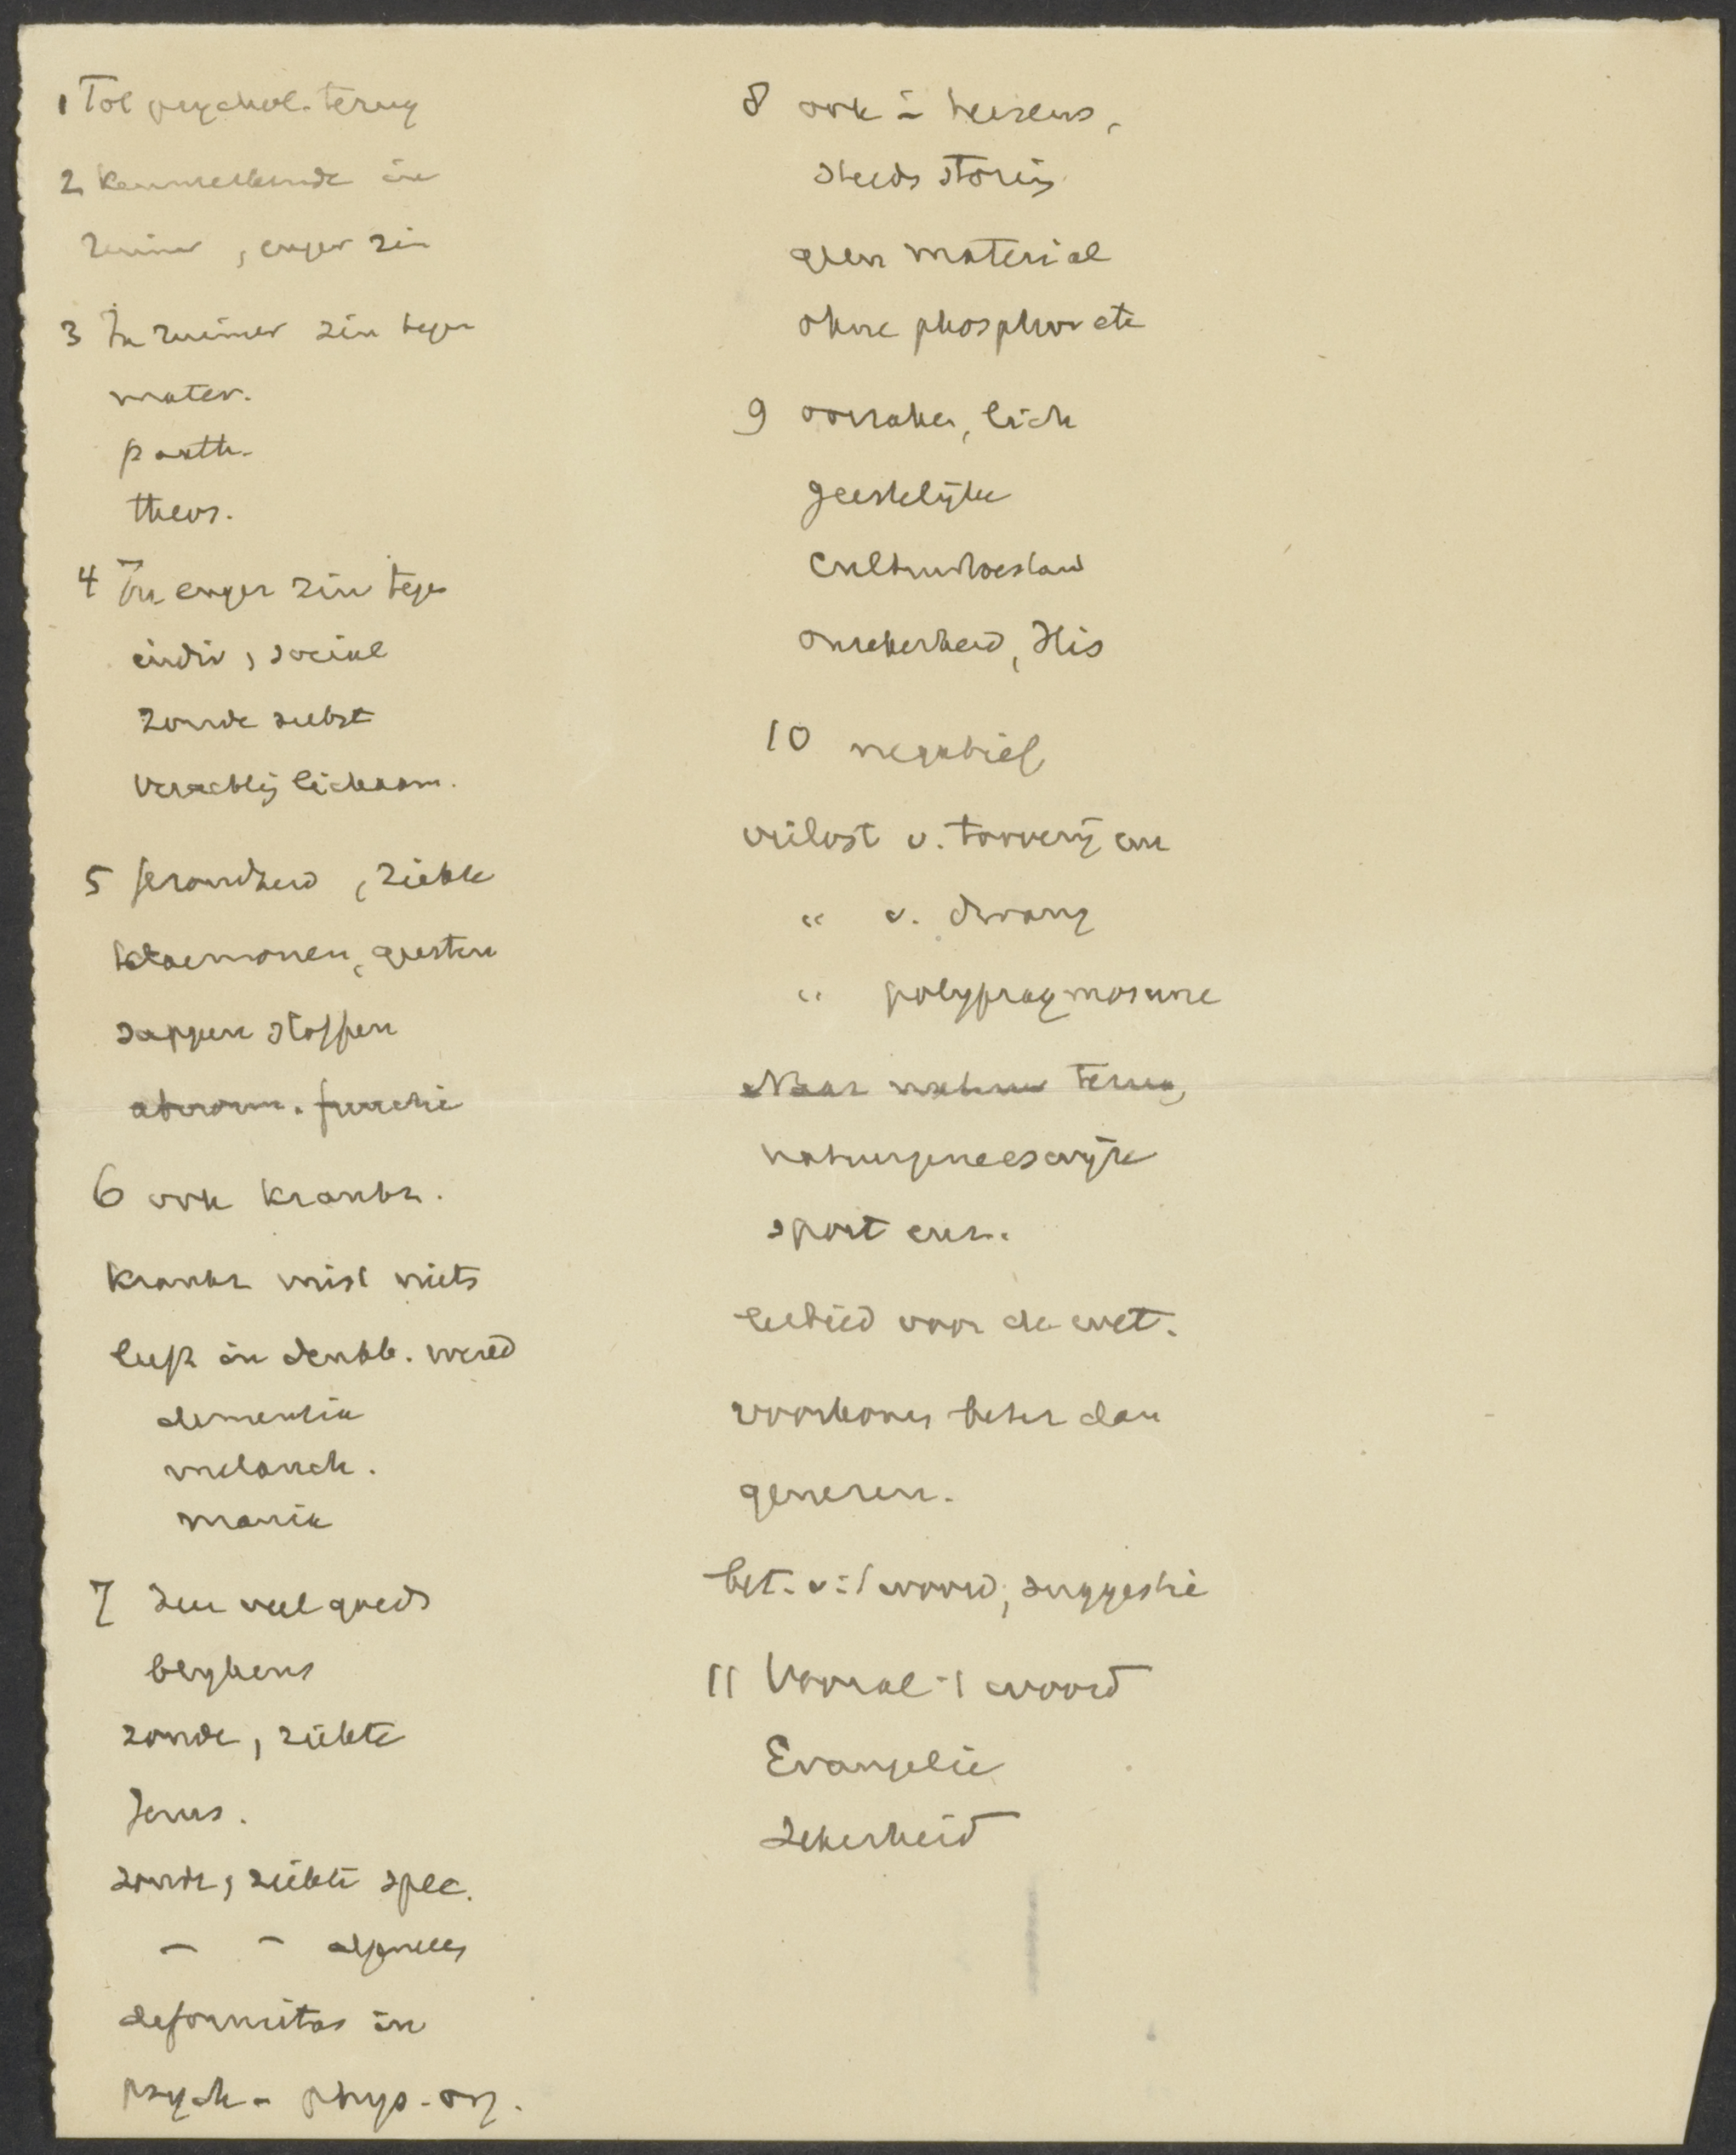 1 Tot psychol. terug
2 Kenmerkende in
ruimer, enger zin
3 In ruimer zin tegen
mater.
panth.
theos.
4 In enger zin tegen
indiv, sociale
zonde zelbst
lichaam.
5 gezondheid, ziekte
daemonen, geesten
sappen stoffen
abnorm. functie
6 ook krankz.
krankz mist niets
leeft in denkb. wereld
dementia
melanch.
mania
7 veel goeds
zonde, ziekte
Jezus.
zonde, ziekte spec.
- - algemeen
deformitas in
psych - phys - org.
8 ook in hersens,
steeds storing
geen material
ohne phosphor etc
9 oorzaken, lich
geestelijke
Cultuurtoestand
onzekerheid,
10 negatief
verlost v. toverij en
" v. dwang
" polypragmosune
Naar natuur terug,
natuurgeneeswijze
sport enz.
eerbied voor de wet.
voorkomen beter dan
genezen.
bet. v. 't woord, suggestie
11 Vooral 't woord
Evangelie
Zekerheid